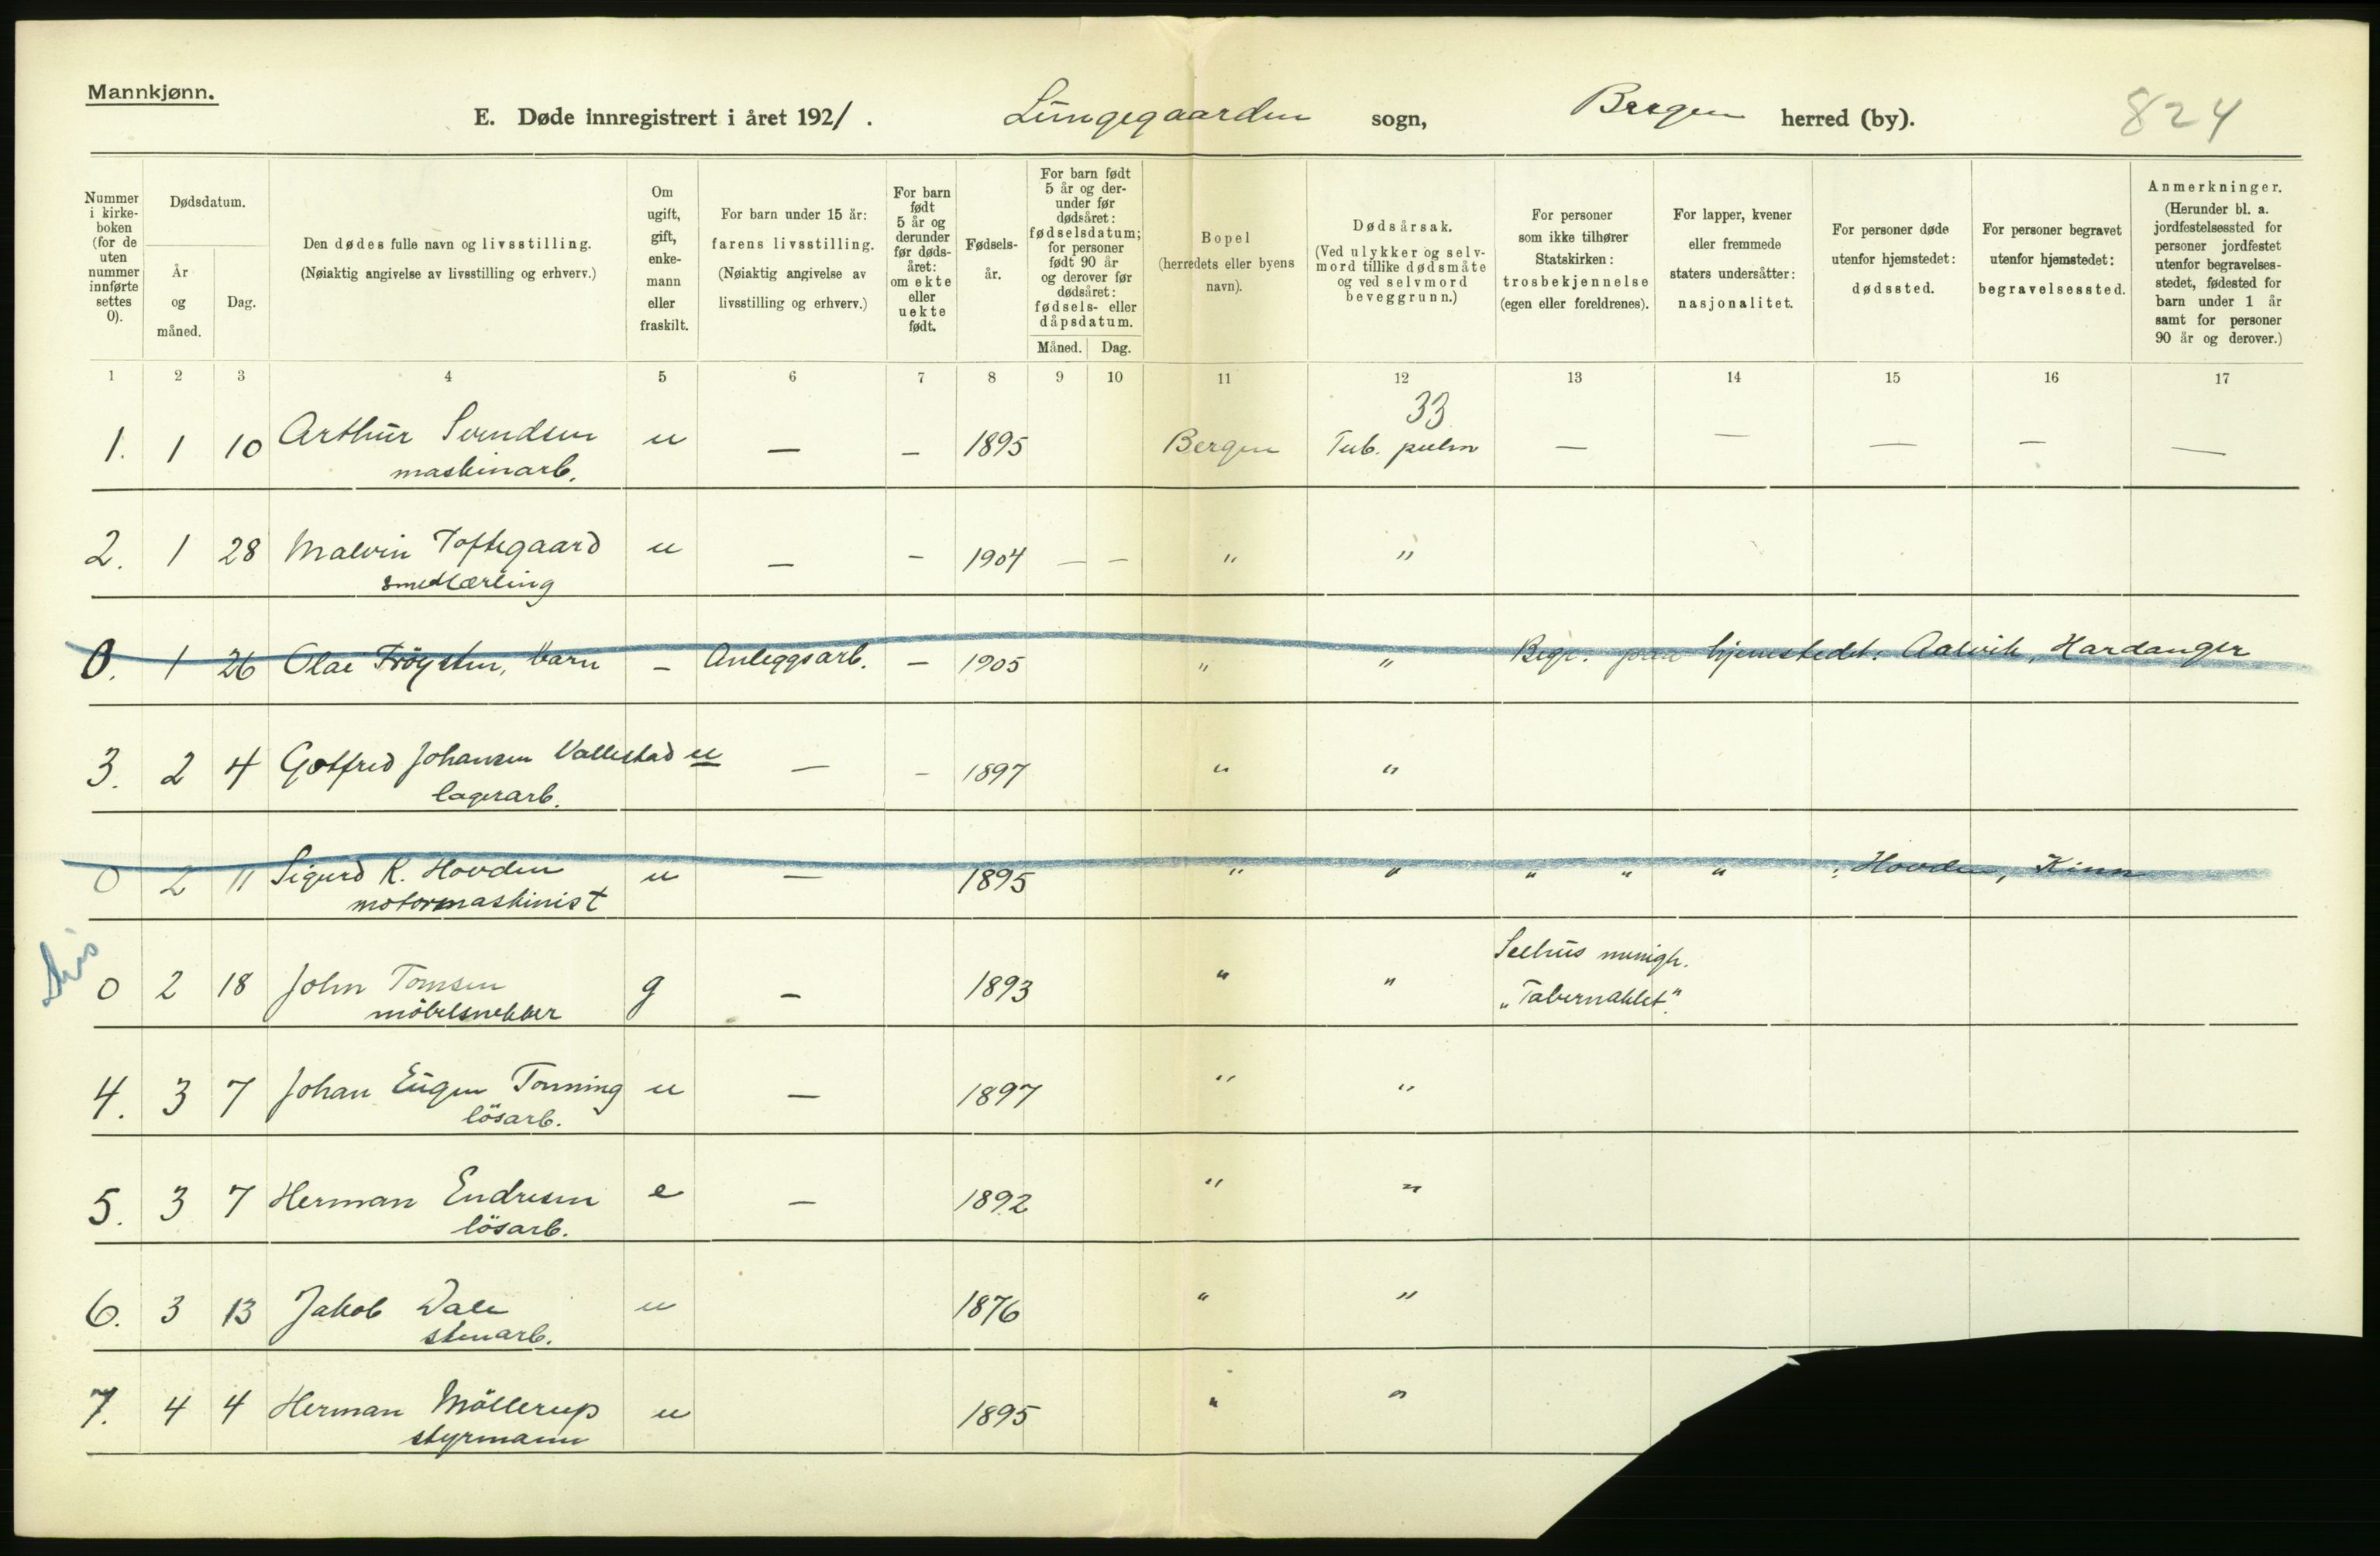 Mannkjønn.
E. Døde innregistrert i året 1921. Lungegaarden sogn, Bergen herred (by). 824
Nummer i kirke- boken (for de uten nummer innførte settes 0).
Dødsdatum.
År og måned.
Dag.
Den dødes fulle navn og livsstilling.
(Nøiaktig angivelse av livsstilling og erhverv.)
Om ugift, gift, enke- mann eller fraskilt.
For barn under 15 år:
farens livsstilling.
(Nøiaktig angivelse av livsstilling og erhverv.)
For barn født 5 år og derunder før døds- året: om ekte eller uekte født.
Fødsels- år.
For barn født 5 år og der- under før dødsåret: fødselsdatum; for personer født 90 år og derover før dødsåret: fødsels- eller dåpsdatum.
Måned. Dag.
Bopel
(herredets eller byens navn).
Dødsårsak.
(Ved ulykker og selv- mord tillike dødsmåte og ved selvmord beveggrunn.)
For personer som ikke tilhører Statskirken: trosbekjennelse (egen eller foreldrenes).
For lapper, kvener eller fremmede staters undersåtter: nasjonalitet.
For personer døde utenfor hjemstedet: dødssted.
For personer begravet utenfor hjemstedet: begravelsessted.
Anmerkninger.
(Herunder bl. a. jordfestelsessted for personer jordfestet utenfor begravelses- stedet, fødested for barn under 1 år samt for personer 90 år og derover.)
1 2 3 4 5 6 7 8 9 10 11 12 13 14 15 16 17
33
1. 1 10 Arthur Svendsen u — — 1895 Bergen Tub. pulm — — — — —
maskinarb.
2. 1 28 Malvin Toftegaard u — — 1904 — — " "
smedlærling
0. 1 26 Olai Tröysten, barn — Anleggsarb. — 1905 " " Begr. paa hjemstedet: Aalvik, Hardanger
3. 2 4 Gotfred Johansen Vallestad u — — 1897 " "
lagerarb.
0 2 11 Sigurd K. Hovden u — 1895 " " " " " : Hovden, Kinn
motormaskinist
0 2 18 John Tomsen g — 1893 " " Seehus menigh.
möbelsnekker "Tabernaklet".
4. 3 7 Johan Eugen Tonning u — 1897 " "
lösarb.
5. 3 7 Herman Endresen e — 1892 " "
lösarb.
6. 3 13 Jakob Dale u 1876 " "
stenarb.
7. 4 4 Herman Möllerup u 1895 " "
styrmann